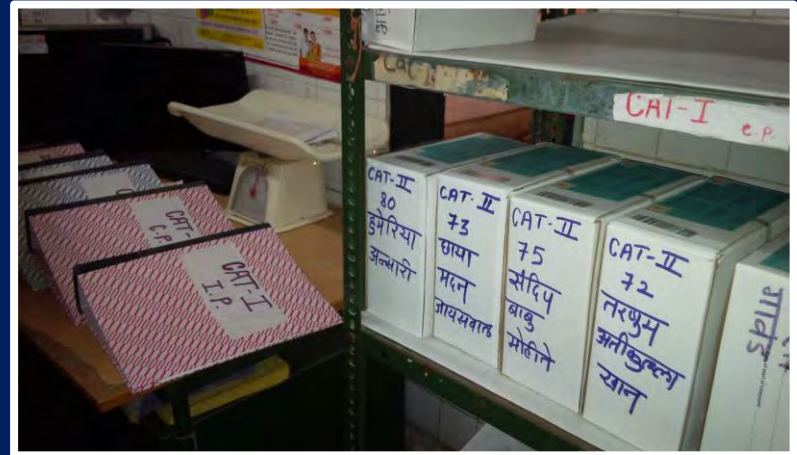 CAT-I
C.P.
CAT-I
I.P.
CAT-I
C.P.
CAT-II
80
हुमेरिया
अन्सारी
CAT-II
73
छाया
मदन
जायसवाल
CAT-II
75
संदिप
बाबु
मोहीते
CAT-II
72
तरणुम
अतीकुल्ला
खान